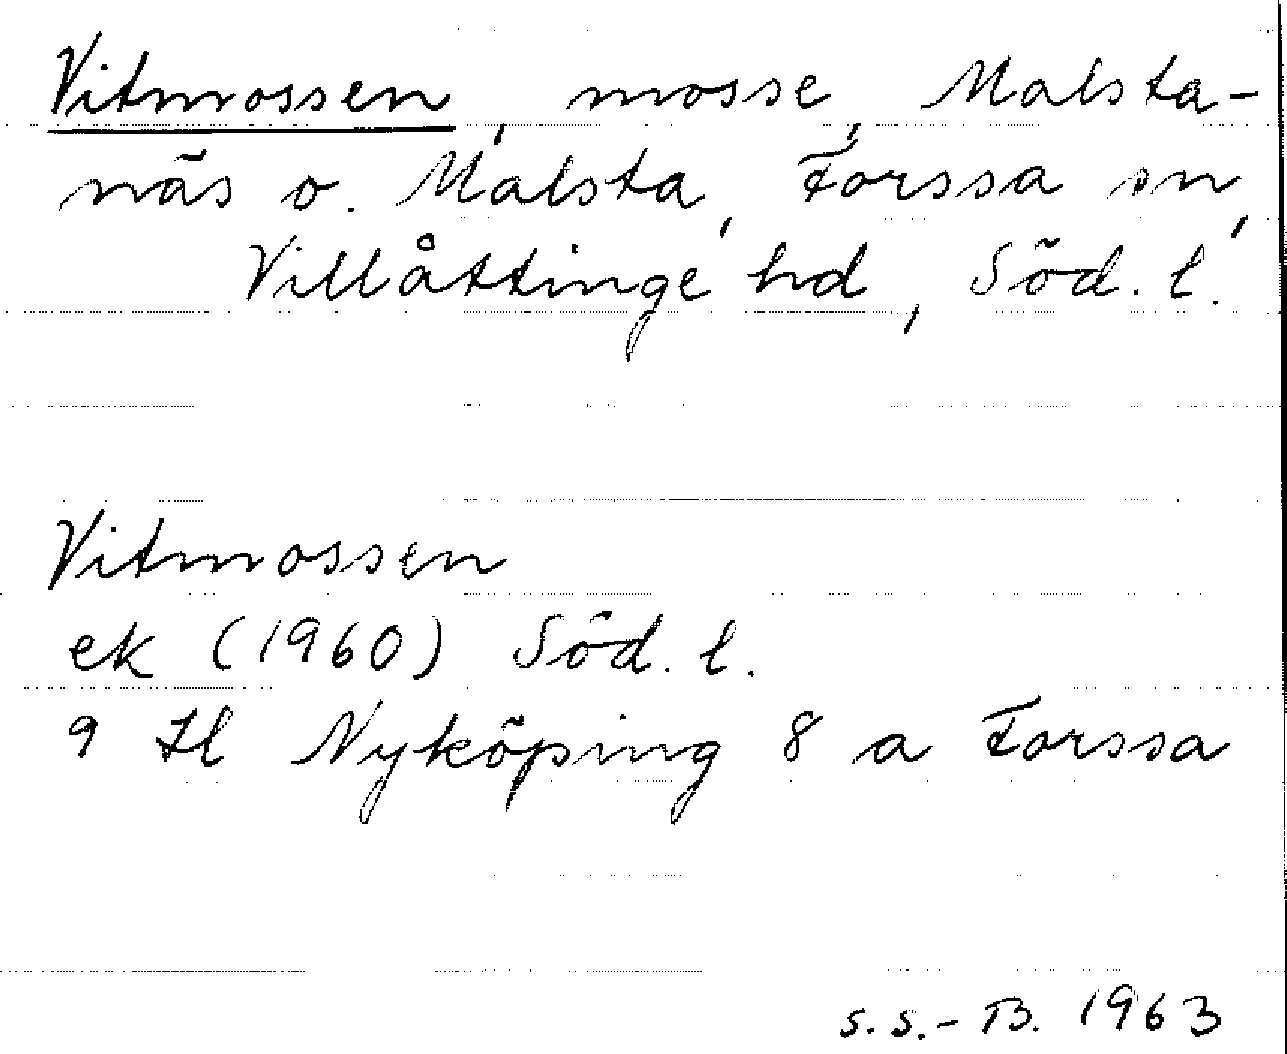 Vitmossen, mosse, Malsta-
näs o. Malsta, Forssa sn,
Villåttinge hd, Söd. l.
Vitmossen
ek (1960) Söd. l.
9 H Nyköping 8 a Forssa
S. S.-B. 1963